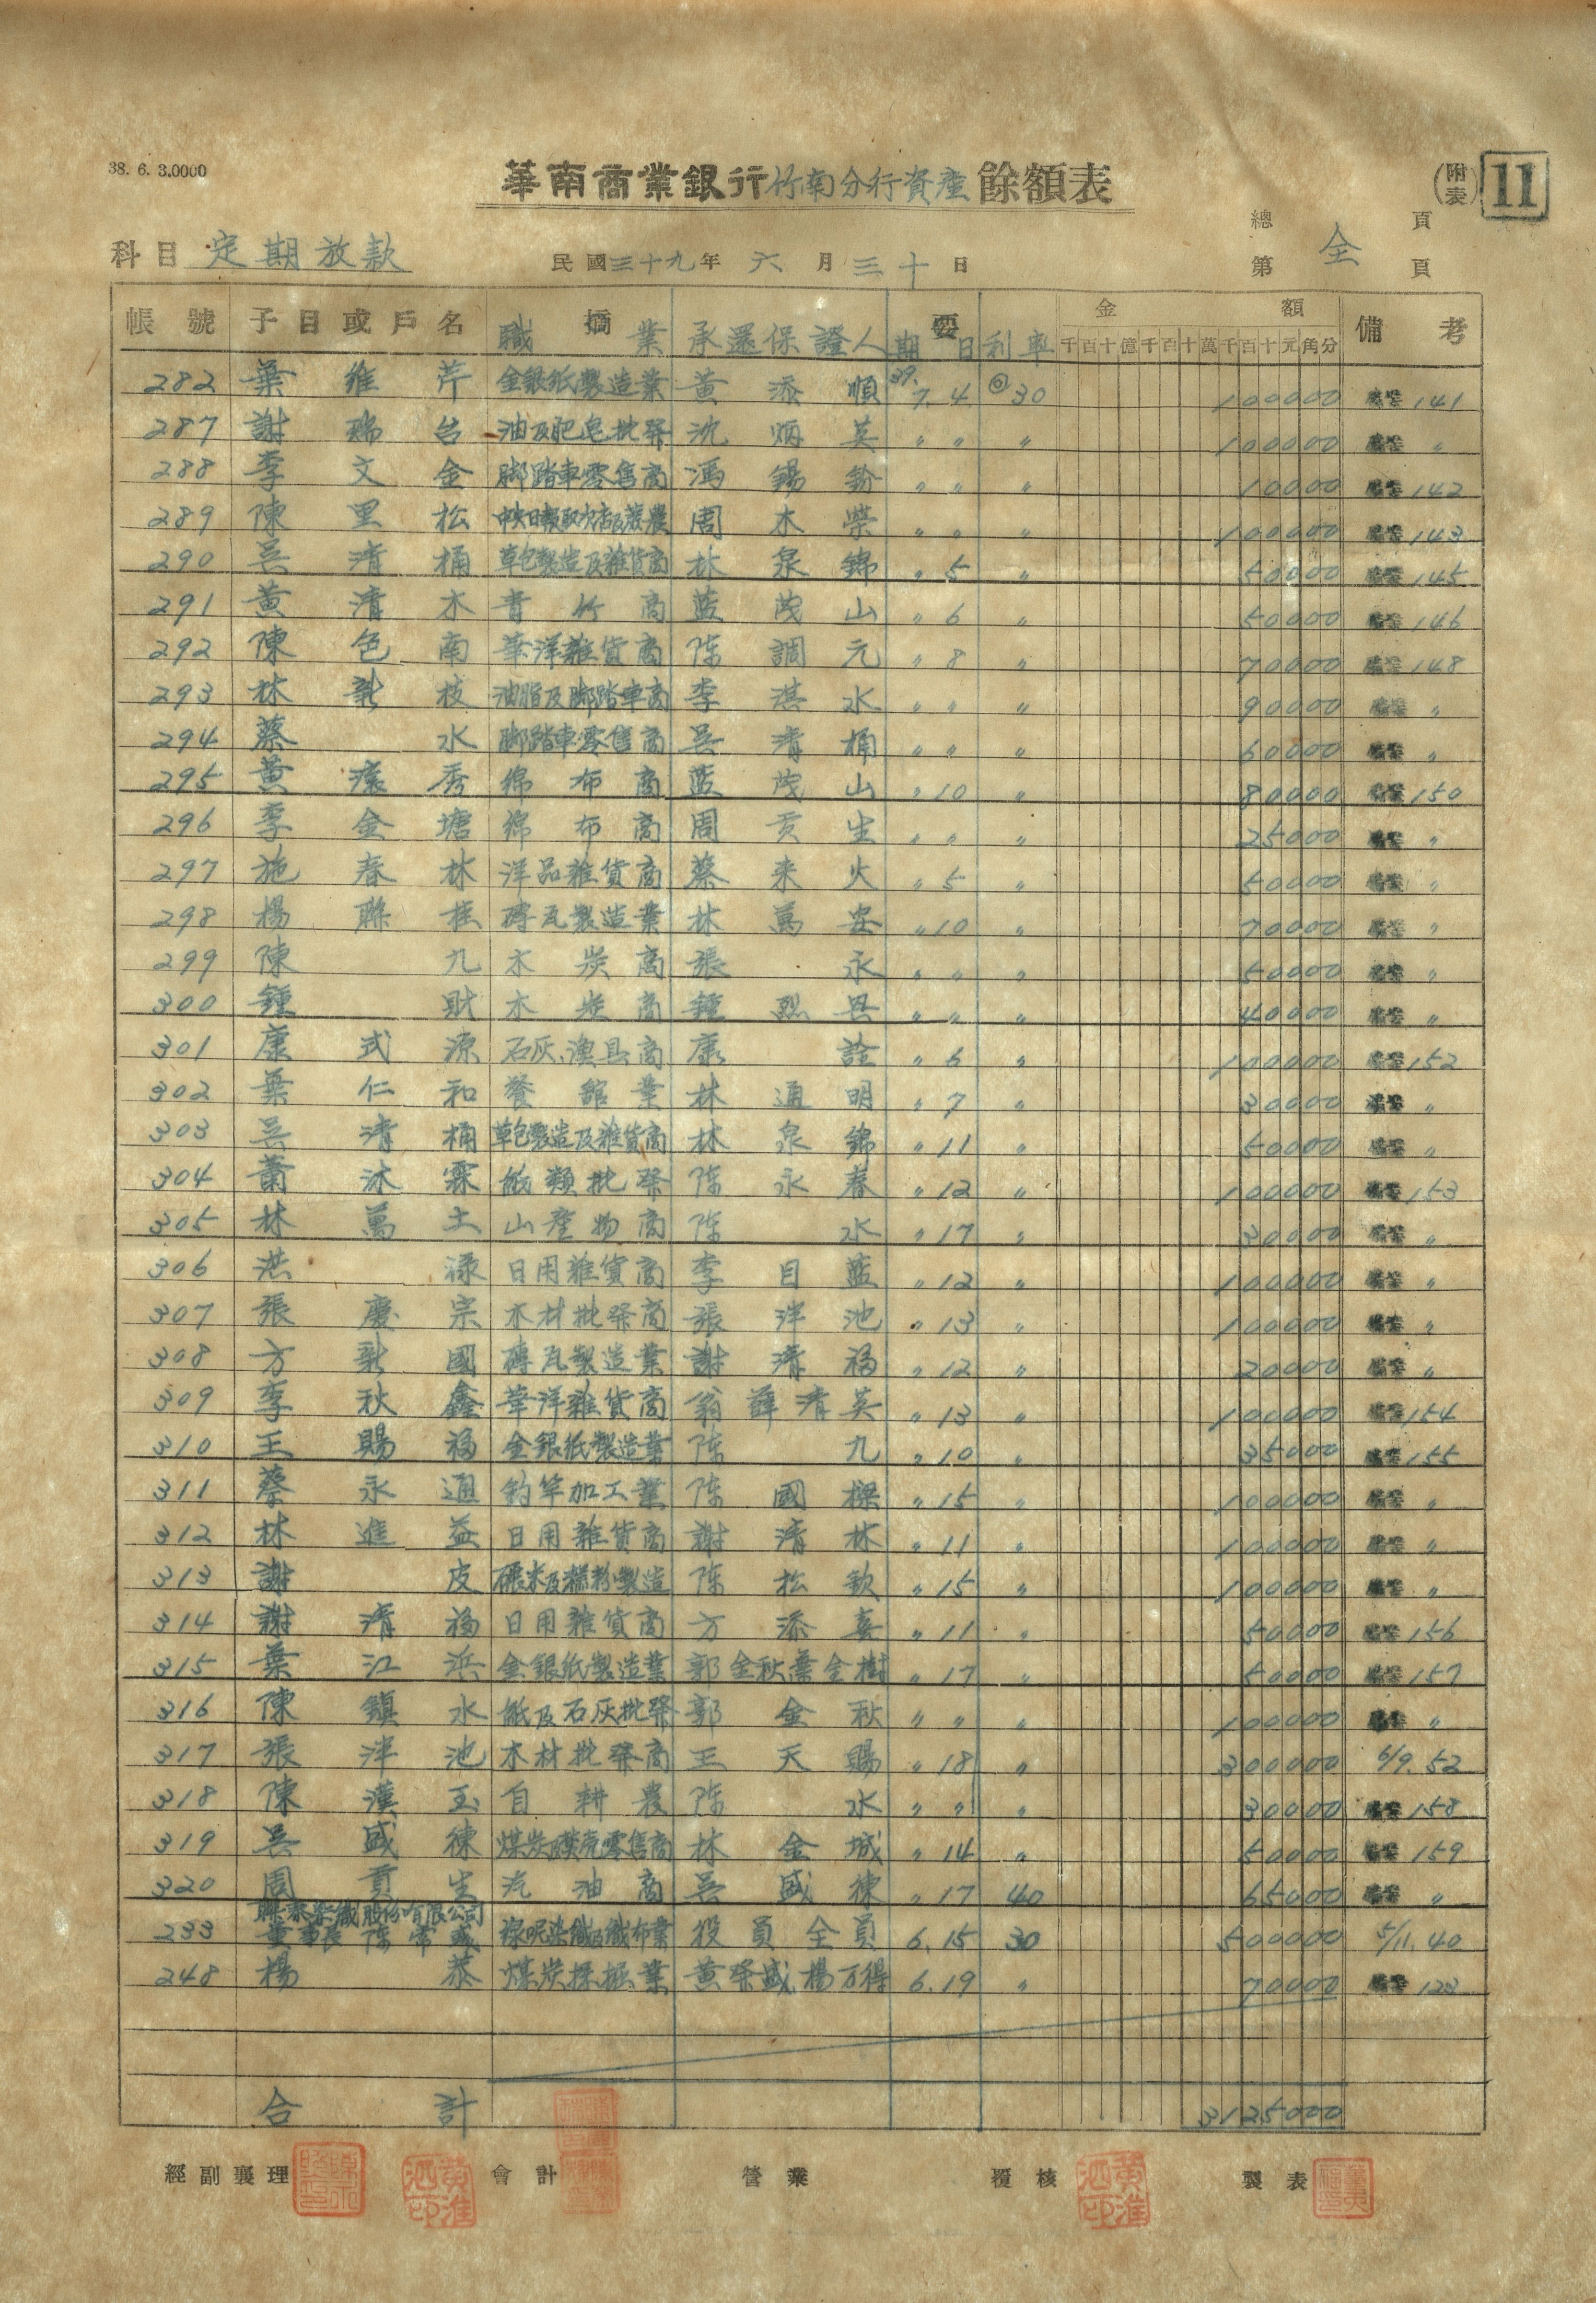 38. 6. 3.0000
華南商業銀行竹南分行資產餘額表
(附表) 11
科目 定期放款
民國三十九年 六 月 三十 日
總 頁
第 全 頁
帳號 子目或戶名 摘 要 金 額 備考
職業 承還保證人 期日 利率 千百十億千百十萬千百十元角分
282 葉維芹 金銀紙製造業 黃添順 39. 7. 4 ◎30 100000 141
287 謝瑞台 油及肥皂批發 沈炳英 〃 〃 〃 100000 〃
288 李文金 脚踏車零售商 馮錫鈴 〃 〃 〃 10000 142
289 陳里松 中央日報取次店及蔗農 周木榮 〃 〃 〃 100000 143
290 吳清桶 草包製造及雜貨商 林泉錦 〃 5 〃 50000 145
291 黃清木 青竹商 蓝茂山 〃 6 〃 50000 146
292 陳色南 華洋雜貨商 陈調元 〃 8 〃 70000 148
293 林新枝 油脂及脚踏車商 李淇水 〃 〃 〃 90000 〃
294 蔡水 脚踏車零售商 吳清桶 〃 〃 〃 60000 〃
295 黃瀛秀 綿布商 蓝茂山 〃 10 〃 80000 150
296 李金塘 綿布商 周贡生 〃 〃 〃 25000 〃
297 施春林 洋品雜貨商 蔡来火 〃 5 〃 50000 〃
298 楊聯桂 磚瓦製造業 林萬安 〃 10 〃 70000 〃
299 陳九 木炭商 張永 〃 〃 〃 50000 〃
300 鍾財 木炭商 鍾烈興 〃 〃 〃 40000 〃
301 康式源 石灰、漁具商 康詮 〃 6 〃 100000 152
302 葉仁和 餐館業 林通明 〃 7 〃 30000 〃
303 吳清桶 草包製造及雜貨商 林泉錦 〃 11 〃 50000 〃
304 蕭沐霖 紙類批發 陈永春 〃 12 〃 100000 153
305 林萬土 山產物商 陈水 〃 17 〃 30000 〃
306 洪禄 日用雜貨商 李目蓝 〃 12 〃 100000 〃
307 張慶宗 木材批發商 張泮池 〃 13 〃 100000 〃
308 方新國 磚瓦製造業 謝清福 〃 12 〃 20000 〃
309 李秋鑫 華洋雜貨商 翁薛清英 〃 13 〃 100000 154
310 王賜福 金銀紙製造業 陈九 〃 10 〃 35000 155
311 蔡永通 釣竿加工業 陈國樑 〃 15 〃 100000 〃
312 林進益 日用雜貨商 謝清林 〃 11 〃 100000 〃
313 謝皮 碾米及糕粉製造 陈松欽 〃 15 〃 100000 〃
314 謝清福 日用雜貨商 方添喜 〃 11 〃 50000 156
315 葉江浜 金銀紙製造業 郭金秋葉金樹 〃 17 〃 50000 157
316 陳鎮水 紙及石灰批發 郭金秋 〃 〃 〃 100000 〃
317 張泮池 木材批發商 王天賜 〃 18 〃 300000 6/9. 52
318 陳漢玉 自耕農 陈水 〃 〃 〃 30000 158
319 吳盛 煤炭零售商 林金城 〃 14 〃 50000 159
320 周貢生 汽油商 吳盛 〃 17 40 65000 〃
聯泰染織股份有限公司
233 董事長 陈常盛 染織及織布業 役員全員 6. 15 30 500000 5/11. 40
248 楊恭 煤炭採掘業 黃發盛、楊万得 6. 19 〃 70000 123
合計 3125000
經副襄理 會計 營業 覆核 製表
黃淮泗印 黃淮泗印